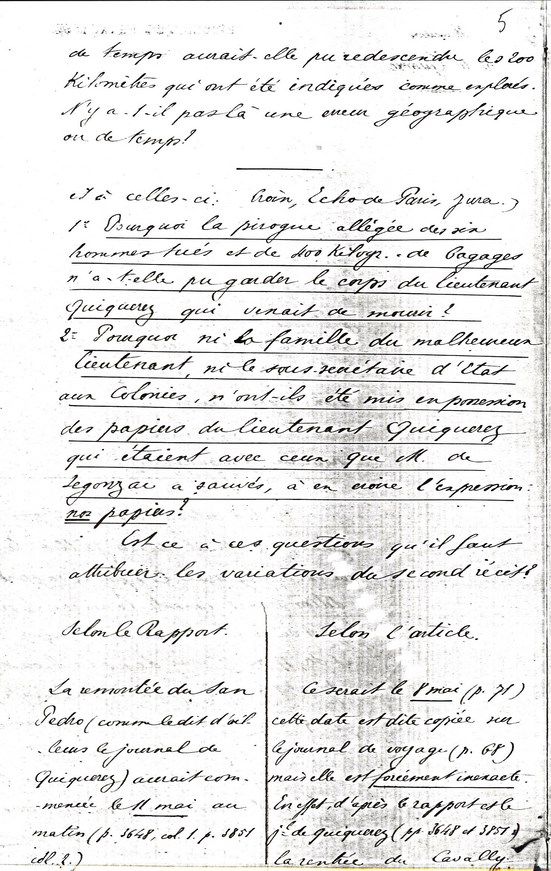 5
de temps aurait-elle pu redescendre les 200
Kilomètres qui ont été indiqués comme explorés.
N'y a-t-il pas là une erreur géographique
ou de temps?
et à celles-ci. Croix, Echo de Paris, Jura.)
1° Pourquoi la pirogue allégée des six
hommes tués et de 400 Kilogr. de bagages
n'a-t-elle pu garder le corps du lieutenant
Quiquerez qui venait de mourir?
2° Pourquoi ni la famille du malheureux
lieutenant, ni le sous-secrétaire d'Etat
aux Colonies, n'ont-ils été mis en possession
des papiers du lieutenant Quiquerez
qui étaient avec ceux que M. de
Segonzac a sauvés, à en croire l'expression:
nos papiers?
Est ce à ces questions qu'il faut
attribuer les variations du second récit?
Selon le Rapport.
La remontée du San
Pedro (comme le dit d'ail
-leurs le journal de
Quiquerez) aurait com-
-mencée le 11 mai au
matin (p. 3648, col 1. p. 3851
col. 2.)
Selon l'article.
Ce serait le 8 mai (p. 71)
cette date est dite copiée sur
le journal de voyage (p. 68)
mais elle est forcément inexacte.
En effet, d'après le rapport et le
jal de Quiquerez (pp 3648 et 3851)
la rentrée du Cavally